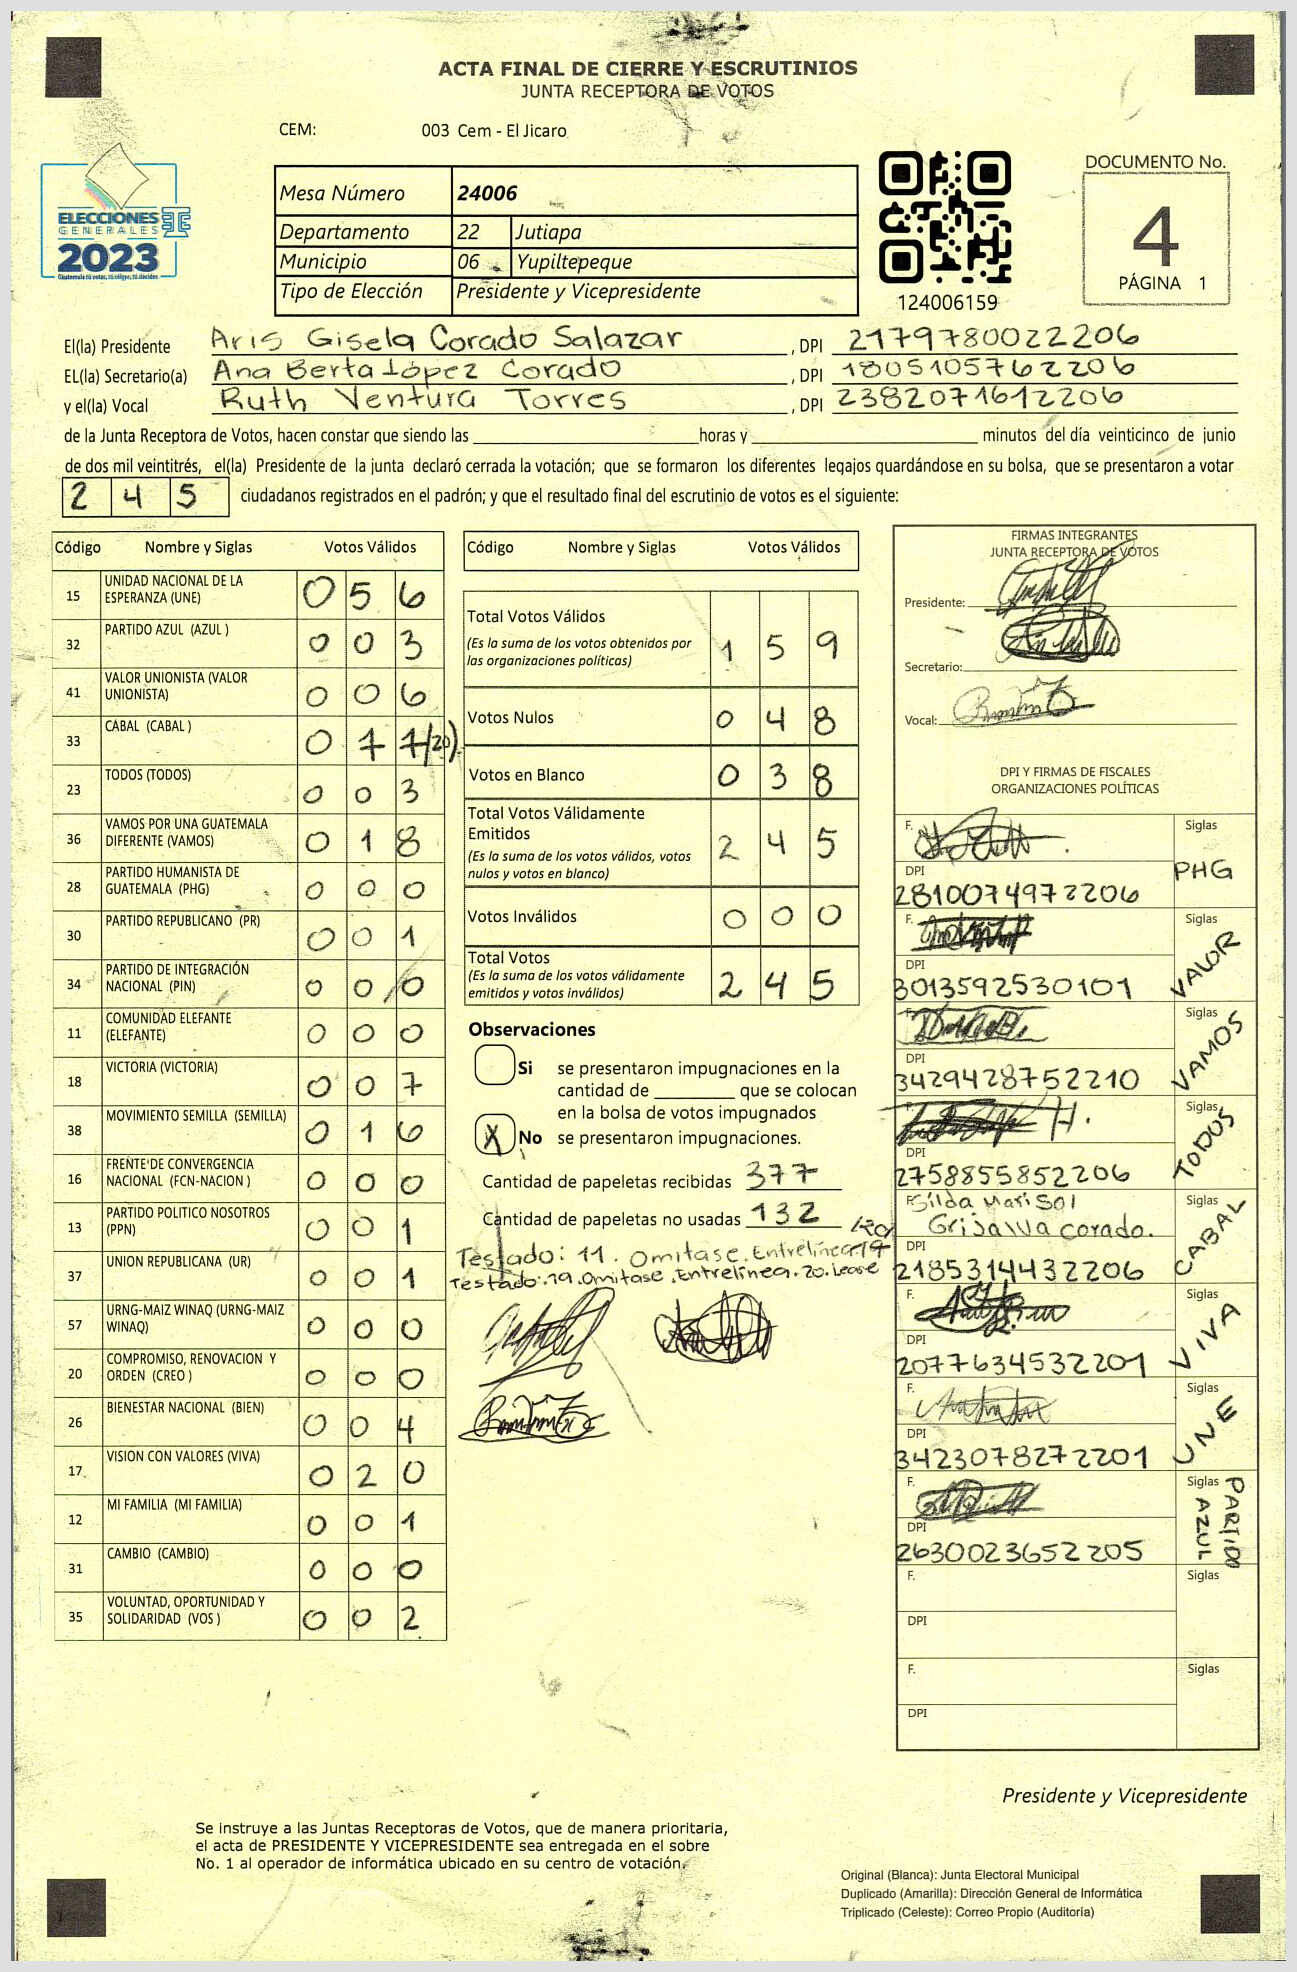 ACTA FINAL DE CIERRE Y ESCRUTINIOS
JUNTA RECEPTORA DE VOTOS
CEM: 003 Cem - El Jicaro
ELECCIONES
GENERALES
2023
Guatemala tú votas, tú eliges, tú decides
Mesa Número 24006
Departamento 22 Jutiapa
Municipio 06 Yupiltepeque
Tipo de Elección Presidente y Vicepresidente
124006159
DOCUMENTO No.
4
PÁGINA 1
El(la) Presidente Aris Gisela Corado Salazar, DPI 2179780022206
EL(la) Secretario(a) Ana Berta López Corado, DPI 1805105762206
y el(la) Vocal Ruth Ventura Torres, DPI 2382071612206
de la Junta Receptora de Votos, hacen constar que siendo las ______ horas y ______ minutos del día veinticinco de junio
de dos mil veintitrés, el(la) Presidente de la junta declaró cerrada la votación; que se formaron los diferentes legajos guardándose en su bolsa, que se presentaron a votar
2 4 5 ciudadanos registrados en el padrón; y que el resultado final del escrutinio de votos es el siguiente:
Código Nombre y Siglas Votos Válidos
15 UNIDAD NACIONAL DE LA ESPERANZA (UNE) 0 5 6
32 PARTIDO AZUL (AZUL ) 0 0 3
41 VALOR UNIONISTA (VALOR UNIONISTA) 0 0 6
33 CABAL (CABAL ) 0 7 7 (20).
23 TODOS (TODOS) 0 0 3
36 VAMOS POR UNA GUATEMALA DIFERENTE (VAMOS) 0 1 8
28 PARTIDO HUMANISTA DE GUATEMALA (PHG) 0 0 0
30 PARTIDO REPUBLICANO (PR) 0 0 1
34 PARTIDO DE INTEGRACIÓN NACIONAL (PIN) 0 0 0
11 COMUNIDAD ELEFANTE (ELEFANTE) 0 0 0
18 VICTORIA (VICTORIA) 0 0 7
38 MOVIMIENTO SEMILLA (SEMILLA) 0 1 6
16 FRENTE DE CONVERGENCIA NACIONAL (FCN-NACION ) 0 0 0
13 PARTIDO POLITICO NOSOTROS (PPN) 0 0 1
37 UNION REPUBLICANA (UR) 0 0 1
57 URNG-MAIZ WINAQ (URNG-MAIZ WINAQ) 0 0 0
20 COMPROMISO, RENOVACION Y ORDEN (CREO ) 0 0 0
26 BIENESTAR NACIONAL (BIEN) 0 0 4
17 VISION CON VALORES (VIVA) 0 2 0
12 MI FAMILIA (MI FAMILIA) 0 0 1
31 CAMBIO (CAMBIO) 0 0 0
35 VOLUNTAD, OPORTUNIDAD Y SOLIDARIDAD (VOS ) 0 0 2
Código Nombre y Siglas Votos Válidos
Total Votos Válidos 1 5 9
(Es la suma de los votos obtenidos por las organizaciones políticas)
Votos Nulos 0 4 8
Votos en Blanco 0 3 8
Total Votos Válidamente Emitidos 2 4 5
(Es la suma de los votos válidos, votos nulos y votos en blanco)
Votos Inválidos 0 0 0
Total Votos 2 4 5
(Es la suma de los votos válidamente emitidos y votos inválidos)
Observaciones
Si se presentaron impugnaciones en la
cantidad de ________ que se colocan
en la bolsa de votos impugnados
X No se presentaron impugnaciones.
Cantidad de papeletas recibidas 377
Cantidad de papeletas no usadas 132
Testado: 11. Omitase. Entrelínea.19
Testado: 19. Omitase. Entrelínea. 20. Lease
FIRMAS INTEGRANTES
JUNTA RECEPTORA DE VOTOS
Presidente:
Secretario:
Vocal:
DPI Y FIRMAS DE FISCALES
ORGANIZACIONES POLÍTICAS
F. Siglas PHG
DPI 2810074972206
F. Siglas VALOR
DPI 3013592530101
F. Siglas VAMOS
DPI 3429428752210
F. Siglas TODOS
DPI 2758855852206
F. Silda Marisol Grijalva Corado. Siglas CABAL
DPI 2185314432206
F. Siglas VIVA
DPI 2077634532201
F. Siglas UNE
DPI 3423078272201
F. Siglas PARTIDO AZUL
DPI 2630023652205
F. Siglas
DPI
F. Siglas
DPI
Presidente y Vicepresidente
Se instruye a las Juntas Receptoras de Votos, que de manera prioritaria,
el acta de PRESIDENTE Y VICEPRESIDENTE sea entregada en el sobre
No. 1 al operador de informática ubicado en su centro de votación.
Original (Blanca): Junta Electoral Municipal
Duplicado (Amarilla): Dirección General de Informática
Triplicado (Celeste): Correo Propio (Auditoría)